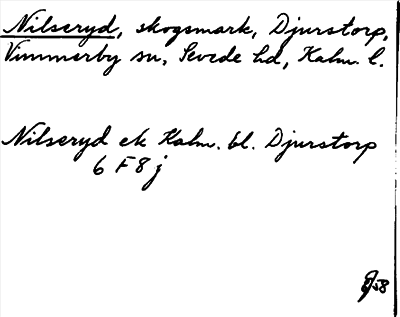 Nilseryd, skogsmark, Djurstorp,
Vimmerby sn, Sevede hd, Kalm. l.
Nilseryd ek Kalm. bl. Djurstorp
6 F 8 j